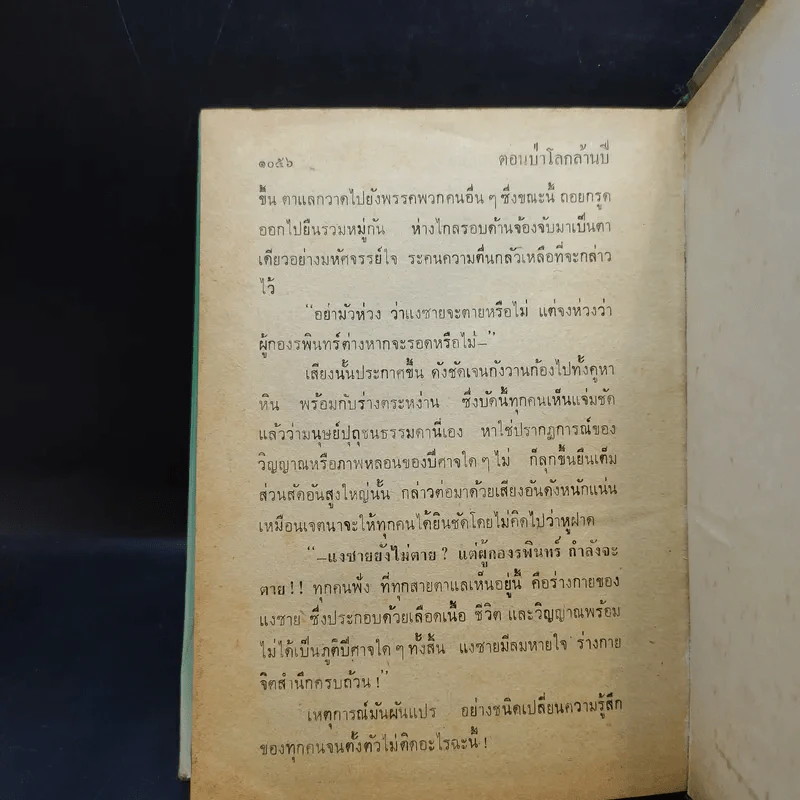 ๑๐๕๖ ตอนป่าโลกล้านปี
ขึ้น ตาแลกวาดไปยังพรรคพวกคนอื่น ๆ ซึ่งขณะนี้ ถอยกรูด
ออกไปยืนรวมหมู่กัน ห่างไกลรอบด้านจ้องจับมาเป็นตา
เดียวอย่างมหัศจรรย์ใจ ระคนความตื่นกลัวเหลือที่จะกล่าว
ไว้
“อย่ามัวห่วง ว่าแงซายจะตายหรือไม่ แต่จงห่วงว่า
ผู้กองรพินทร์ต่างหากจะรอดหรือไม่–”
เสียงนั้นประกาศขึ้น ดังชัดเจนกังวานก้องไปทั้งคูหา
หิน พร้อมกับร่างตระหง่าน ซึ่งบัดนี้ทุกคนเห็นแจ่มชัด
แล้วว่ามนุษย์ปุถุชนธรรมดานี่เอง หาใช่ปรากฏการณ์ของ
วิญญาณหรือภาพหลอนของปีศาจใด ๆ ไม่ ก็ลุกขึ้นยืนเต็ม
ส่วนสัดอันสูงใหญ่นั้น กล่าวต่อมาด้วยเสียงอันดังหนักแน่น
เหมือนเจตนาจะให้ทุกคนได้ยินชัดโดยไม่คิดไปว่าหูฝาด
“–แงซายยังไม่ตาย ? แต่ผู้กองรพินทร์ กำลังจะ
ตาย ! ! ทุกคนฟัง ที่ทุกสายตาแลเห็นอยู่นี้ คือร่างกายของ
แงซาย ซึ่งประกอบด้วยเลือดเนื้อ ชีวิต และวิญญาณพร้อม
ไม่ได้เป็นภูติปีศาจใด ๆ ทั้งสิ้น แงซายมีลมหายใจ ร่างกาย
จิตสำนึกครบถ้วน !”
เหตุการณ์มันผันแปร อย่างชนิดเปลี่ยนความรู้สึก
ของทุกคนจนตั้งตัวไม่ติดอะไรฉะนี้ !